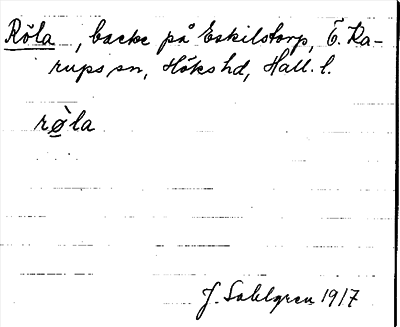 Röla, backe på Eskilstorp, Ö. Ka-
rups sn, Höks hd, Hall. l.
rø̀la
J. Sahlgren 1917